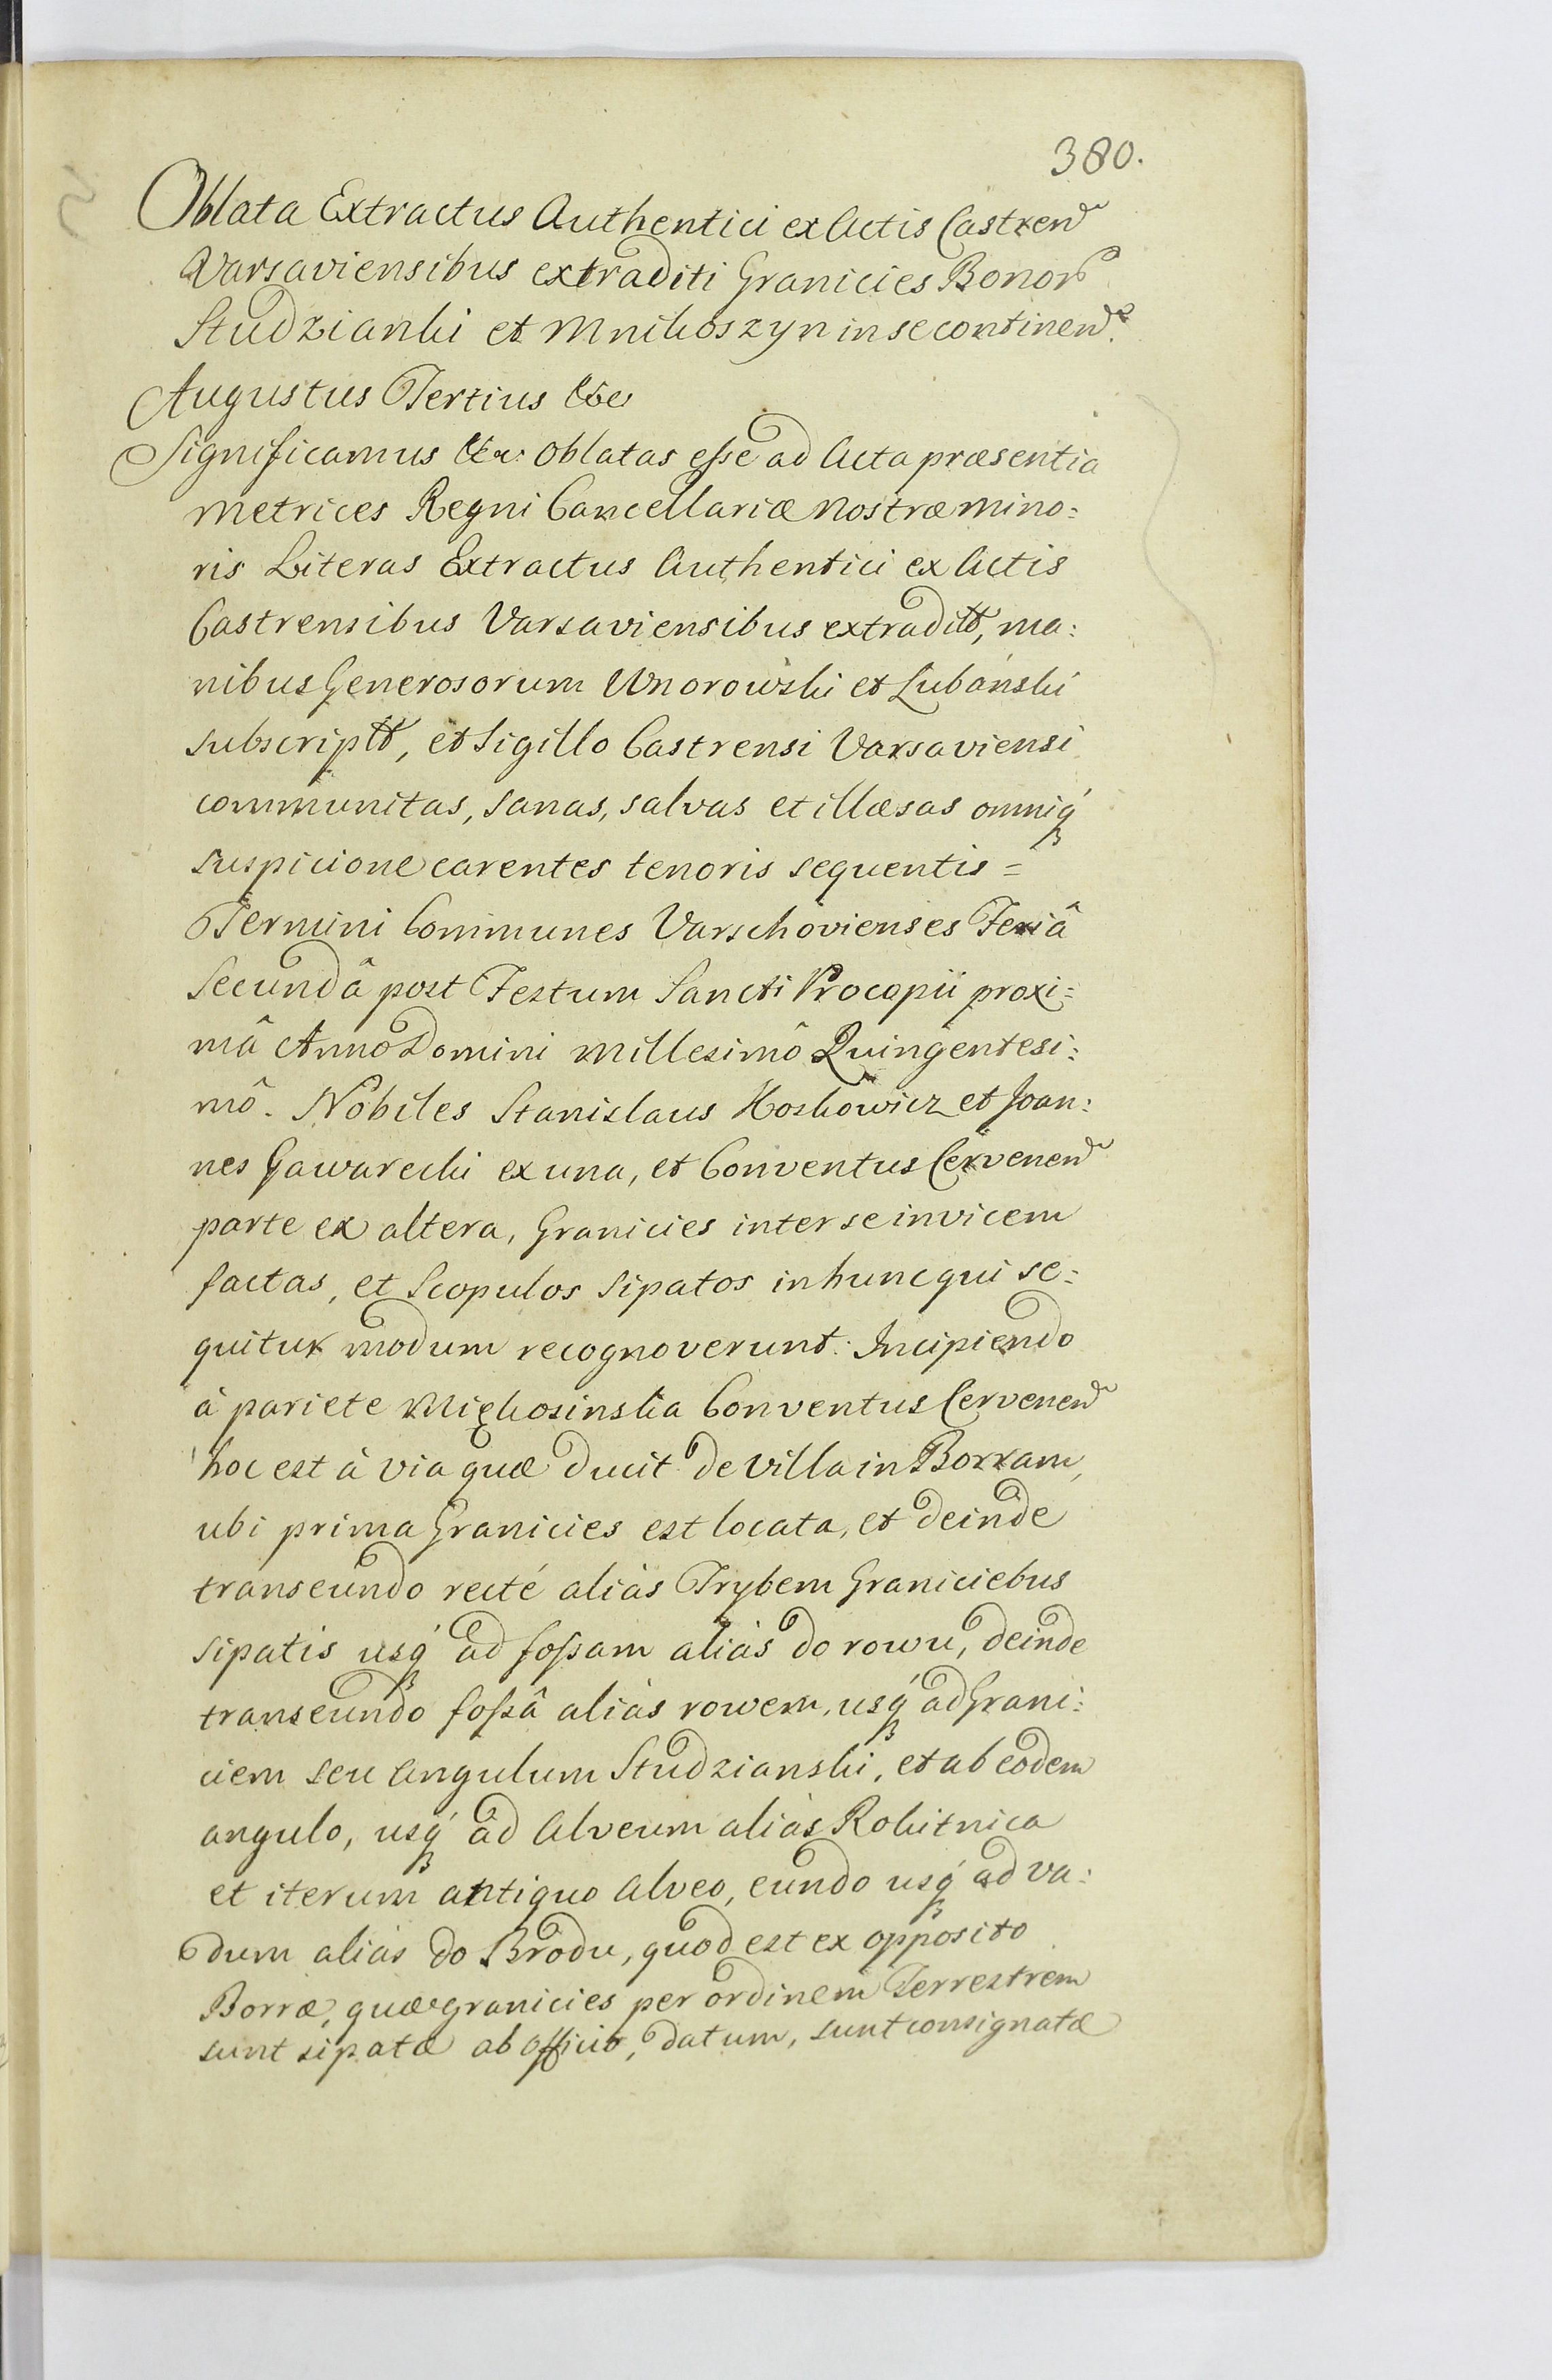 380.
Oblata Extractus Authentici ex Actis Castren
Varsaviensibus extraditi Granicies Bonor
Studzianki et Mnikoszyn in se continen.
Augustus Tertius &c
Significamus &c. Oblatas esse ad Acta præsentia
Metrices Regni Cancellariæ Nostræ Mino=
ris Literas Extractus Authentici ex Actis
Castrensibus Varsaviensibus extraditt, ma:
nibus Generosorum Wnorowski et Lubański
subscriptt, et Sigillo Castrensi Varsaviensi
communitas, sanas, salvas et illæsas omniq́
suspicione carentes tenoris sequentis =
Termini Communes Varschovienses Feriâ
Secundâ post Festum Sancti Procopii proxi=
mâ Anno Domini Millesimô Quingentesi:
mô. Nobiles Stanislaus Koskowicz et Joan:
nes Gawarecki ex una, et Conventus Cervenen
parte ex altera, Granicies inter se invicem
factas, et Scopulos Sipatos in hunc qui se:
quitur modum recognoverunt: Incipiendo
à pariete Miękosinska Conventus Cervenen
hoc est à via quæ ducit de Villa in Borram,
ubi prima Granicies est locata, et deinde
transeundo recté aliàs Trybem Graniciebus
sipatis usq́ ad fossam aliàs do rowu, deinde
transeundo fossâ aliàs rowem, usq́ ad Grani:
ciem seu Angulum Studzianski, et ab eodem
angulo, usq́ ad Alveum aliàs Rokitnica
et iterum antiquo Alveo, eundo usq́ ad va:
dum aliàs do Brodu, quod est ex opposito
Borræ, quæ granicies per ordinem Terrestrem
sunt sipatæ ab Officio, datum, sunt consignatæ